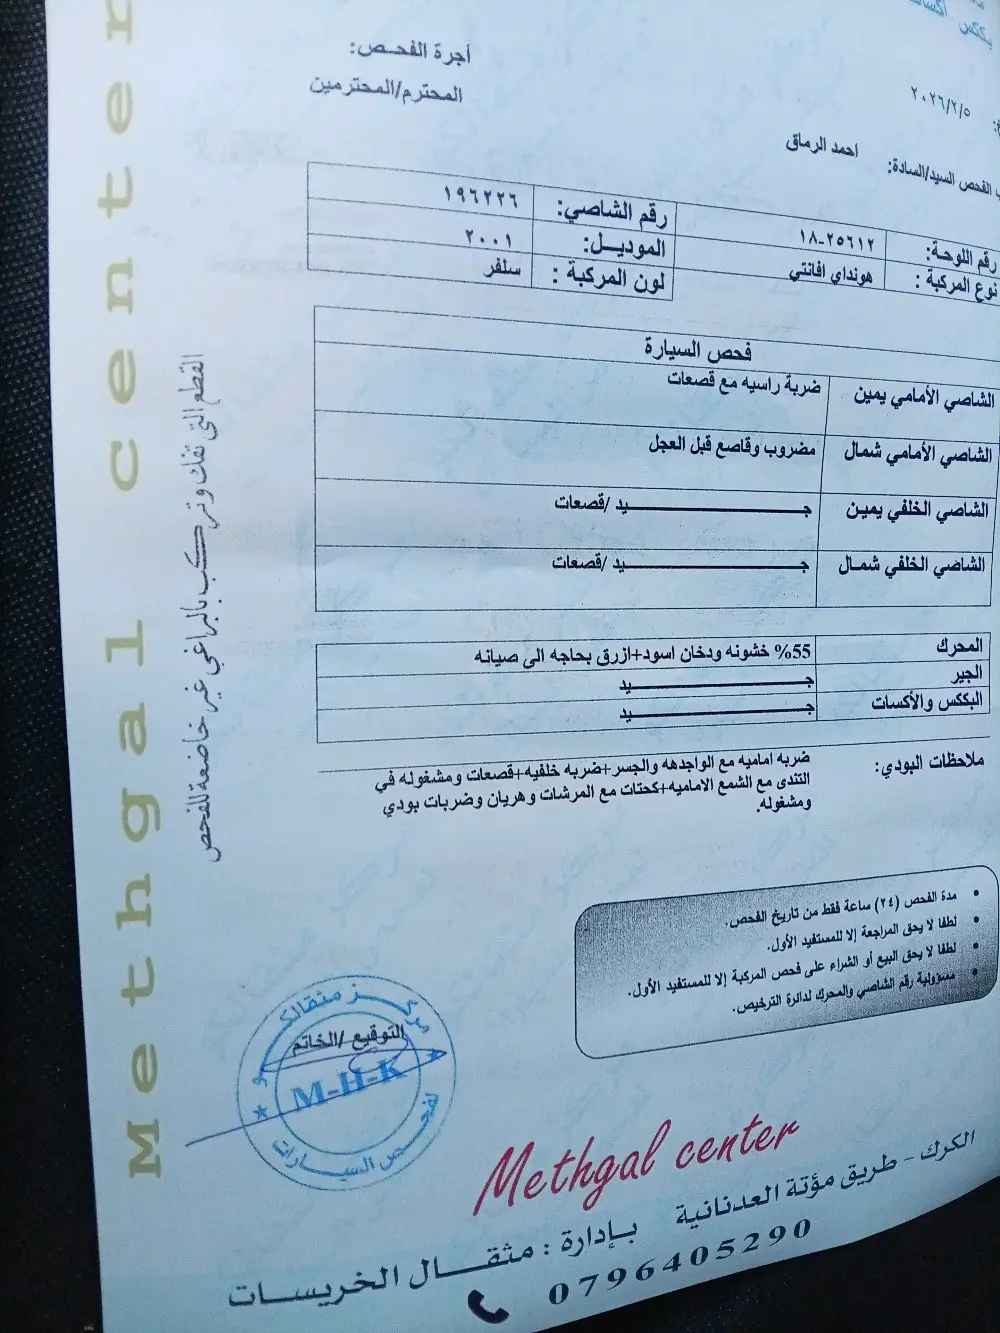 أجرة الفحـص:
المحترم/المحترمين
٢٠٢٦/٢/٥
الفحص السيد/السادة: احمد الرماق
رقم اللوحة: ٢٥٦١٢-١٨ رقم الشاصي: ١٩٦٢٢٦
نوع المركبة : هونداي افانتي الموديـــل: ٢٠٠١
لون المركبة : سلفر
فحص السيارة
الشاصي الأمامي يمين ضربة راسيه مع قصعات
الشاصي الأمامي شمال مضروب وقاصع قبل العجل
الشاصي الخلفي يميـن جـــــــــيد /قصعات
الشاصي الخلفي شمـال جـــــــــيد /قصعات
المحرك 55% خشونه ودخان اسود+ازرق بحاجه الى صيانه
الجير جـــــــــيد
البككس والأكسات جـــــــــيد
ملاحظات البودي: ضربه اماميه مع الواجدهه والجسر+ضربه خلفيه+قصعات ومشغوله في
التندى مع الشمع الاماميه+كحتات مع المرشات وهريان وضربات بودي
ومشغوله.
• مدة الفحص (٢٤) ساعة فقط من تاريخ الفحص.
• لطفا لا يحق المراجعة إلا للمستفيد الأول.
• لطفا لا يحق البيع أو الشراء على فحص المركبة إلا للمستفيد الأول.
• مسؤولية رقم الشاصي والمحرك لدائرة الترخيص.
القطع التي تفك وتركب بالبراغي غير خاضعة للفحص
Methgal center
التوقيع /الخاتم
M-H-K
لفحـص السيـارات
Methgal center
الكرك - طريق مؤتة العدنانية
بـإدارة : مثقـال الخريسـات
0796405290